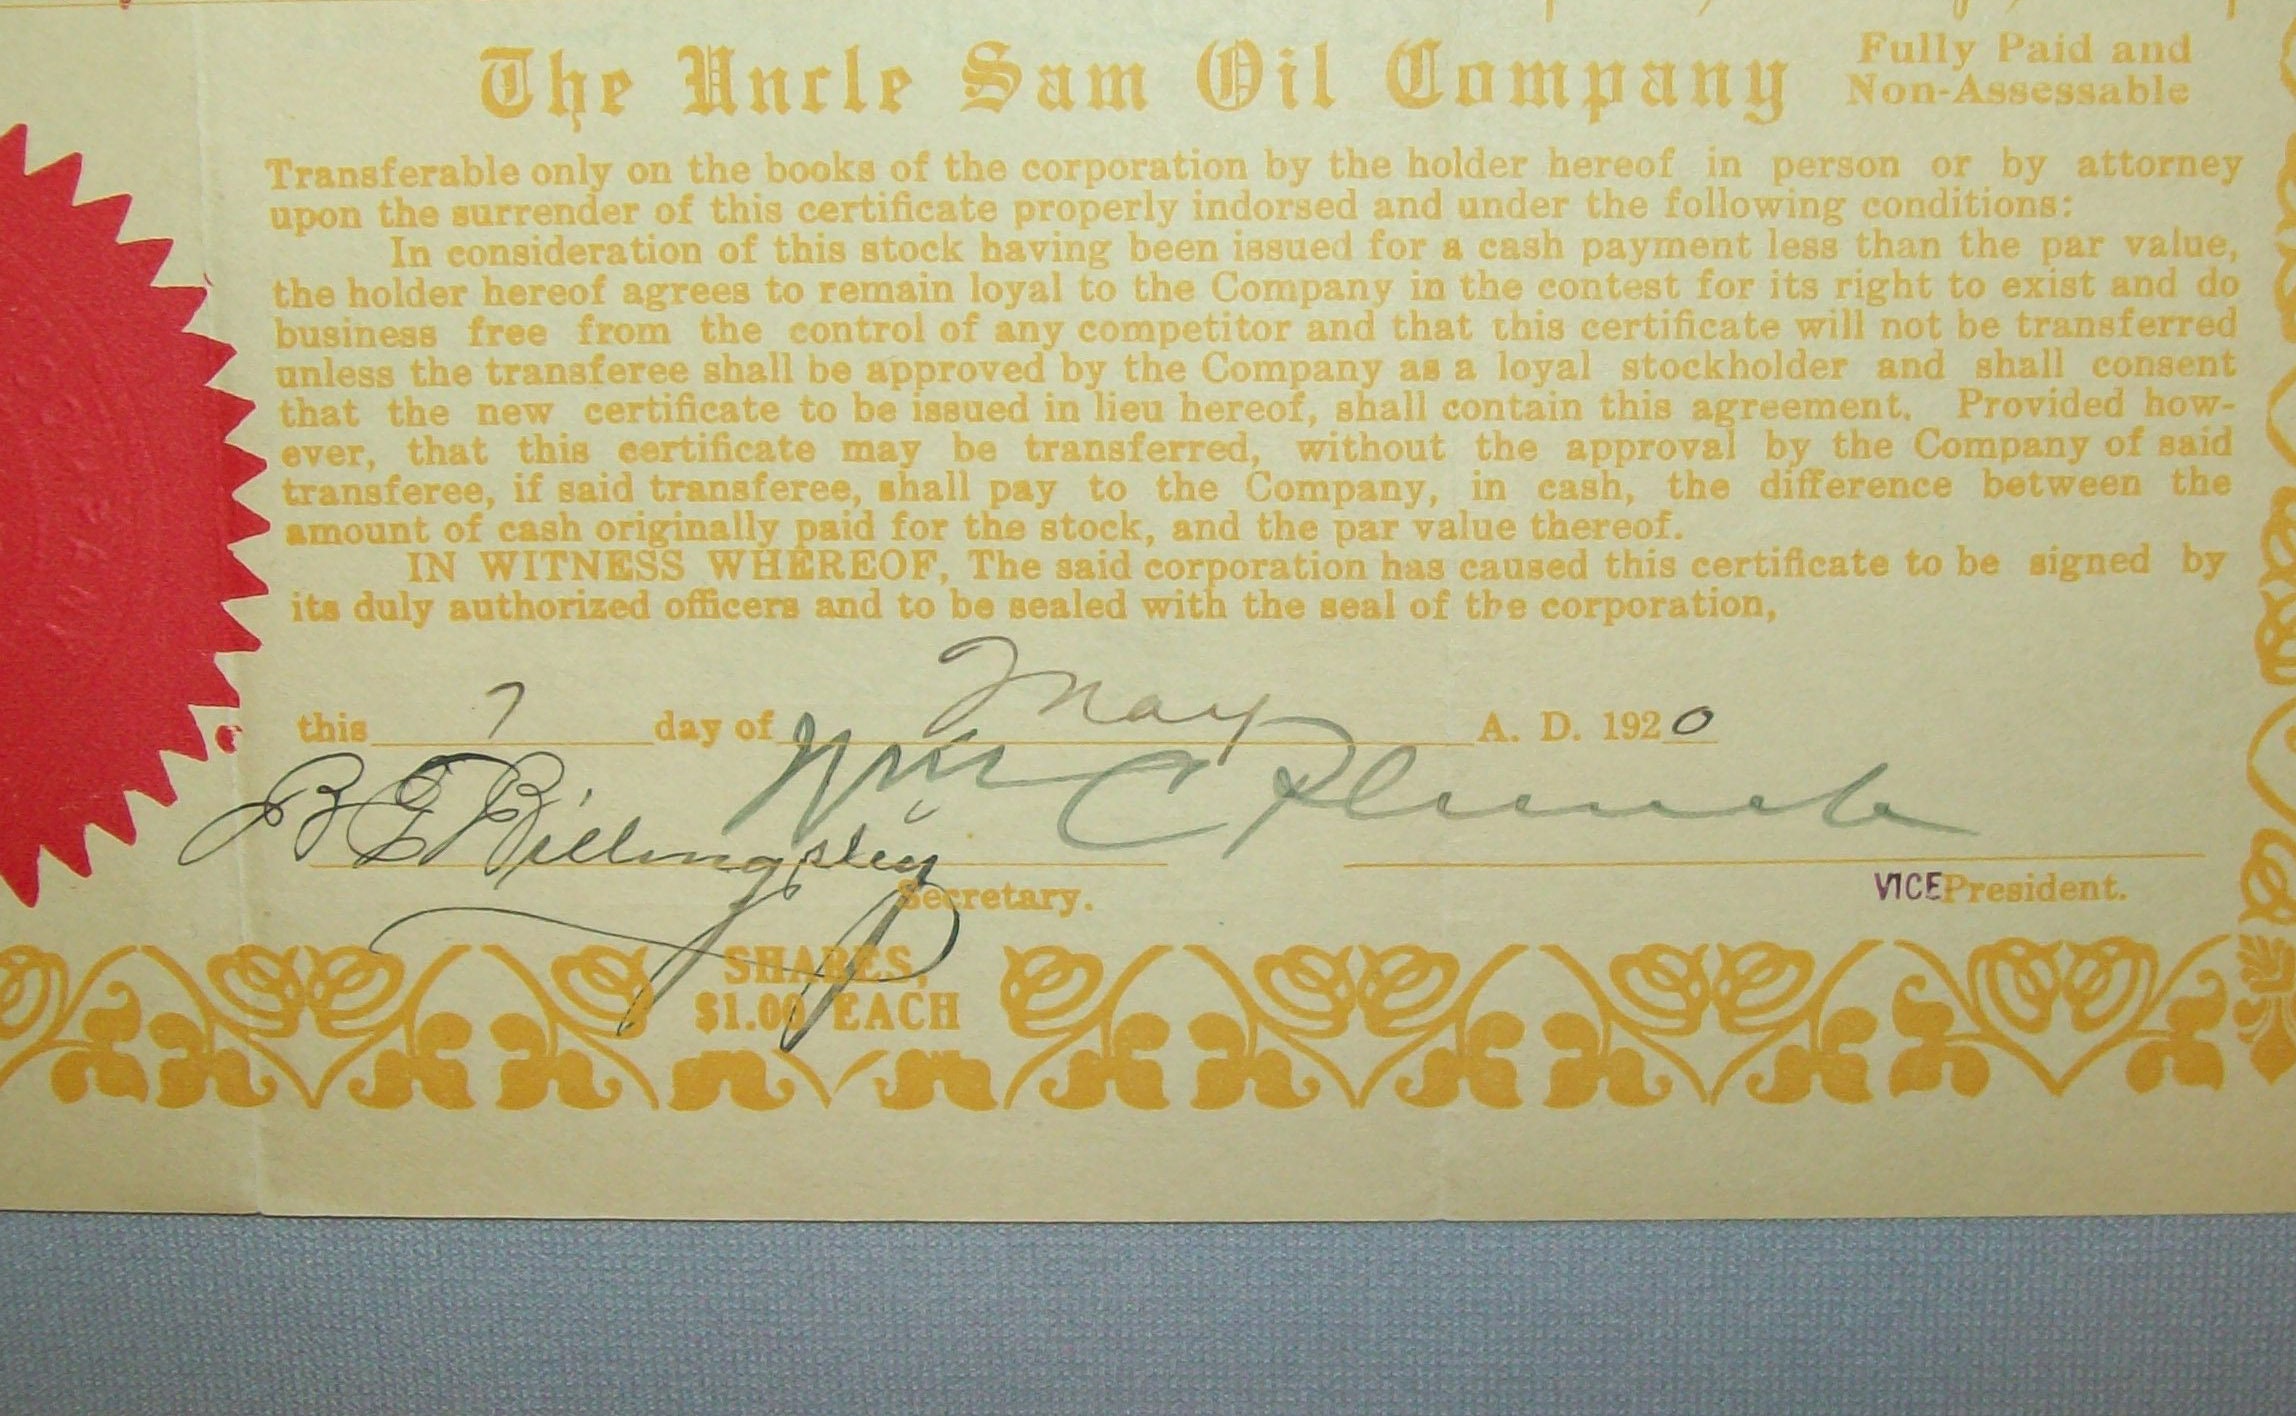 The Uncle Sam Oil Company Fully Paid and
Non-Assessable
Transferable only on the books of the corporation by the holder hereof in person or by attorney
upon the surrender of this certificate properly indorsed and under the following conditions:
In consideration of this stock having been issued for a cash payment less than the par value,
the holder hereof agrees to remain loyal to the Company in the contest for its right to exist and do
business free from the control of any competitor and that this certificate will not be transferred
unless the transferee shall be approved by the Company as a loyal stockholder and shall consent
that the new certificate to be issued in lieu hereof, shall contain this agreement. Provided how-
ever, that this certificate may be transferred, without the approval by the Company of said
transferee, if said transferee, shall pay to the Company, in cash, the difference between the
amount of cash originally paid for the stock, and the par value thereof.
IN WITNESS WHEREOF, The said corporation has caused this certificate to be signed by
its duly authorized officers and to be sealed with the seal of the corporation,
this 7 day of May A. D. 1920
B E Billingsley Wm C Plumb
Secretary. VICE President.
SHARES,
$1.00 EACH